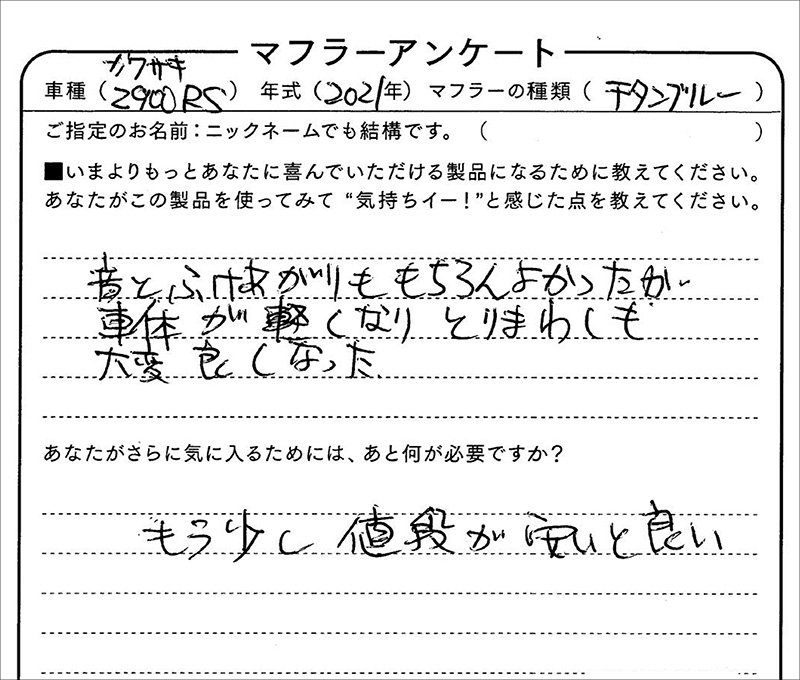 マフラーアンケート
カワサキ
車種（Z900RS） 年式（2021年）マフラーの種類（チタンブルー）
ご指定のお名前：ニックネームでも結構です。（　　　）
■いまよりもっとあなたに喜んでいただける製品になるために教えてください。
あなたがこの製品を使ってみて“気持ちイー！”と感じた点を教えてください。
音とふけあがりももちろんよかったが
車体が軽くなりとりまわしも
大変良くなった
あなたがさらに気に入るためには、あと何が必要ですか？
もう少し値段が安いと良い